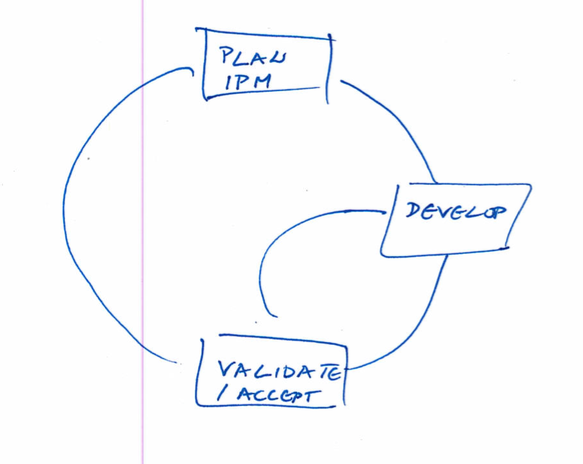 PLAN
IPM
DEVELOP
VALIDATE
/ ACCEPT